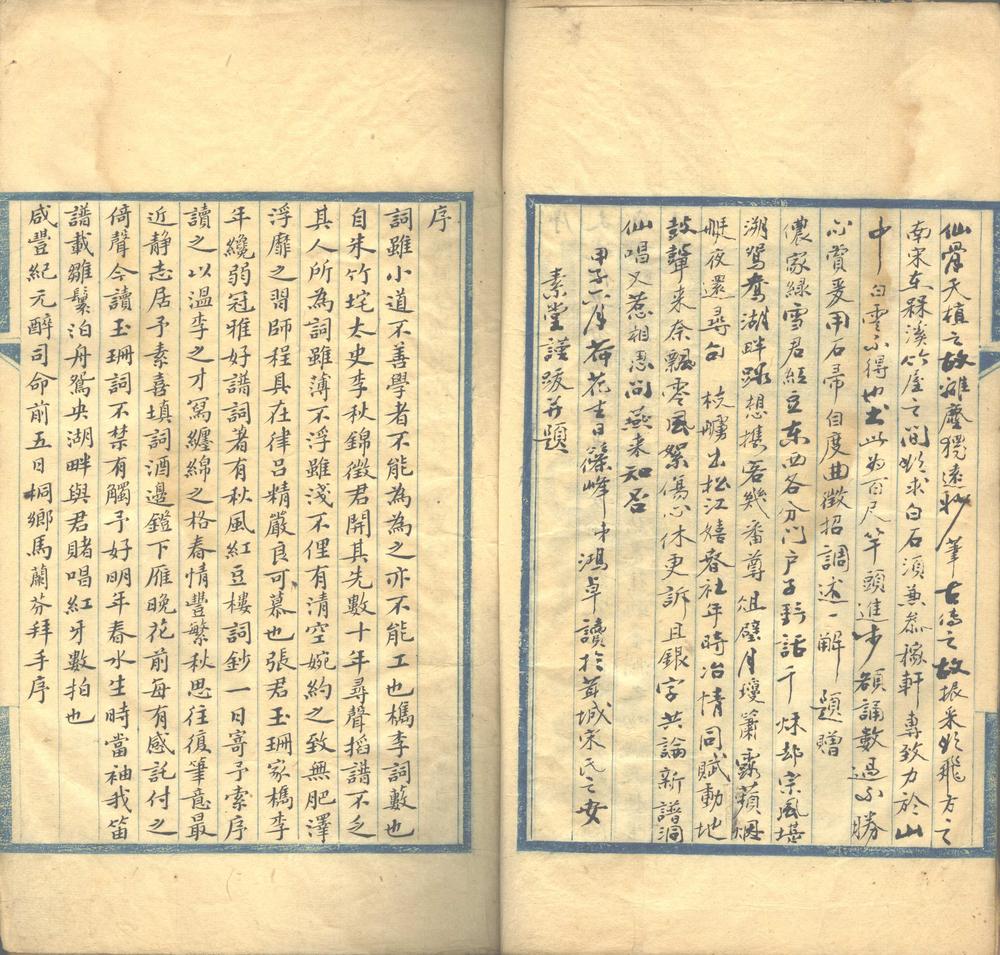 仙骨天植之故離塵獨遠妙筆古傳之故振采欲飛方之
南宋在槑溪竹屋之間欲求白石須兼叅稼軒專致力於山
中白雲不得也書此為百尺竿頭進步額誦數過不勝
心賞爰用石帚自度曲徵招調述一解題贈
儂家綠雪君紅豆东西各分門户子野話千秌却宗風堪
溯鴛鴦湖畔路想攜君幾番尊俎壁月瓊簫露蘋烟
艇夜還尋句 枝艣出松江嬉春社年時冶情同賦動地
鼓聲来奈飄零風絮傷心休更訴且銀字共論新譜洞
仙唱又惹相思問燕来知否
甲子六月荷花生日篠峰弟鴻卓讀於茸城宋氏之安
素堂謹跋并題
序
詞雖小道不善學者不能為為之亦不能工也檇李詞藪也
自朱竹垞太史李秋錦徵君開其先數十年尋聲搯譜不乏
其人所為詞雖薄不浮雖淺不俚有清空婉約之致無肥澤
浮靡之習師程具在律呂精嚴良可慕也張君玉珊家檇李
年纔弱冠雅好譜詞著有秋風紅豆樓詞鈔一日寄予索序
讀之以溫李之才寫纏綿之格春情豐繁秋思往復筆意最
近静志居予素喜填詞酒邊鐙下雁晚花前每有感託付之
倚聲今讀玉珊詞不禁有觸予好明年春水生時當袖我笛
譜載雛鬟泊舟鴛央湖畔與君賭唱紅牙數拍也
咸豐紀元醉司命前五日桐鄉馬蘭芬拜手序